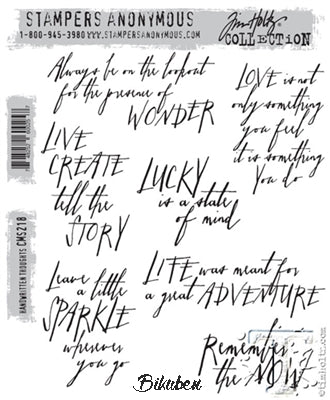 STAMPERS ANONYMOUS
1-800-945-3980 WWW.STAMPERSANONYMOUS.COM
Tim Holtz
COLLECTION
Always be on the lookout
for the presence of
WONDER
LOVE is not
only something
you feel
it is something
you do
LIVE
CREATE
tell the
STORY
LUCKY
is a state
of mind
HANDWRITTEN THOUGHTS CMS218
LIFE was meant for
a great ADVENTURE
Leave
a little
SPARKLE
wherever
you go
Remember:
the NOW
©timholtz.com
Bikuben